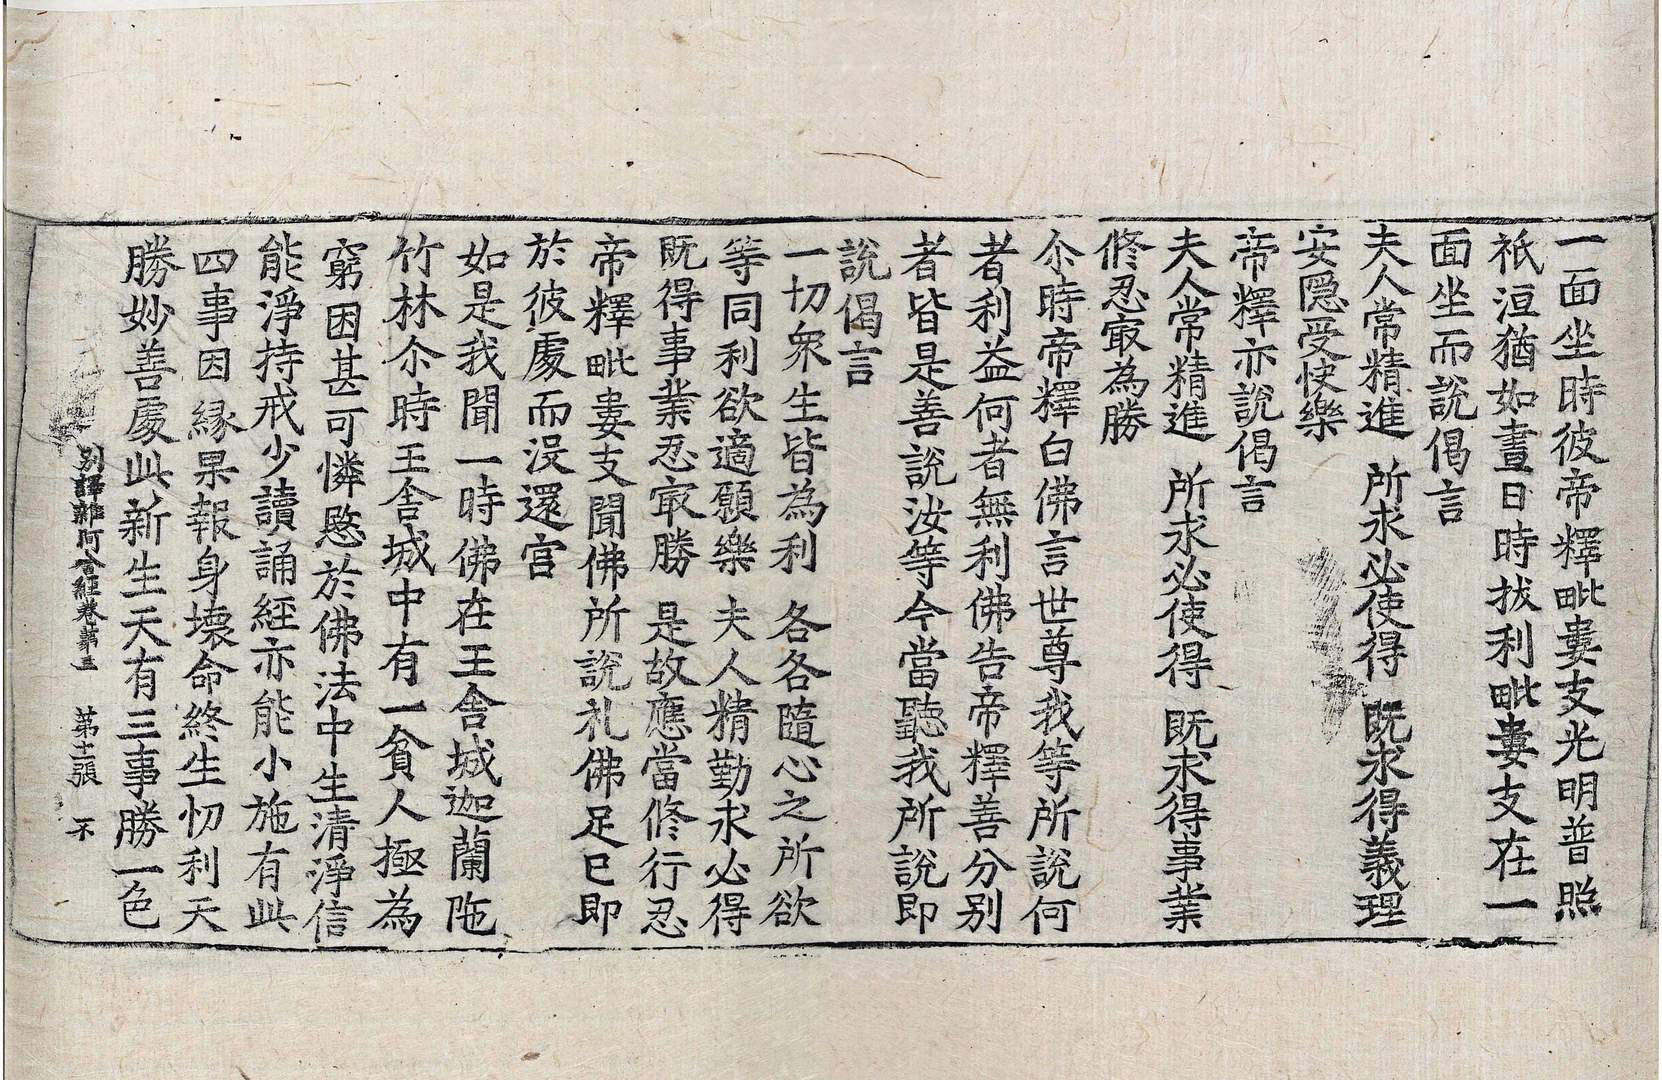 一面坐時彼帝釋毗婁支光明普照
祇洹猶如晝日時拔利毗婁支在一
面坐而說偈言
夫人常精進　所求必使得　既求得義理
安隱受快樂
帝釋亦說偈言
夫人常精進　所求必使得　既求得事業
修忍㝡為勝
尒時帝釋白佛言世尊我等所說何
者利益何者無利佛告帝釋善分別
者皆是善說汝等今當聽我所說即
說偈言
一切衆生皆為利　各各隨心之所欲
等同利欲適願樂　夫人精勤求必得
既得事業忍㝡勝　是故應當修行忍
帝釋毗婁支聞佛所說礼佛足已即
於彼處而沒還宮
如是我聞一時佛在王舍城迦蘭陁
竹林尒時王舍城中有一貧人極為
窮困甚可憐愍於佛法中生清淨信
能淨持戒少讀誦經亦能小施有此
四事因緣果報身壞命終生忉利天
勝妙善處此新生天有三事勝一色
別譯雜阿含經卷第三　第十二張　不